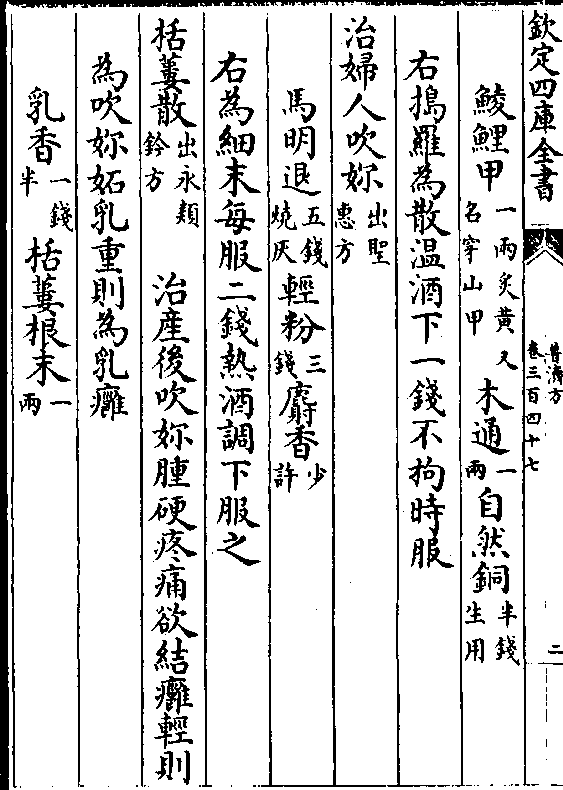 欽定四庫全書
普濟方
卷三百四十七
二
鯪鯉甲一兩炙黃又名穿山甲木通一兩自然銅半錢生用
右搗羅為散温酒下一錢不拘時服
治婦人吹妳出聖惠方
馬明退五錢燒灰輕粉三錢麝香少許
右為細末每服二錢熱酒調下服之
栝蔞散出永類鈐方治産後吹妳腫硬疼痛欲結癰輕則
為吹妳妬乳重則為乳癰
乳香一錢半栝蔞根末一兩